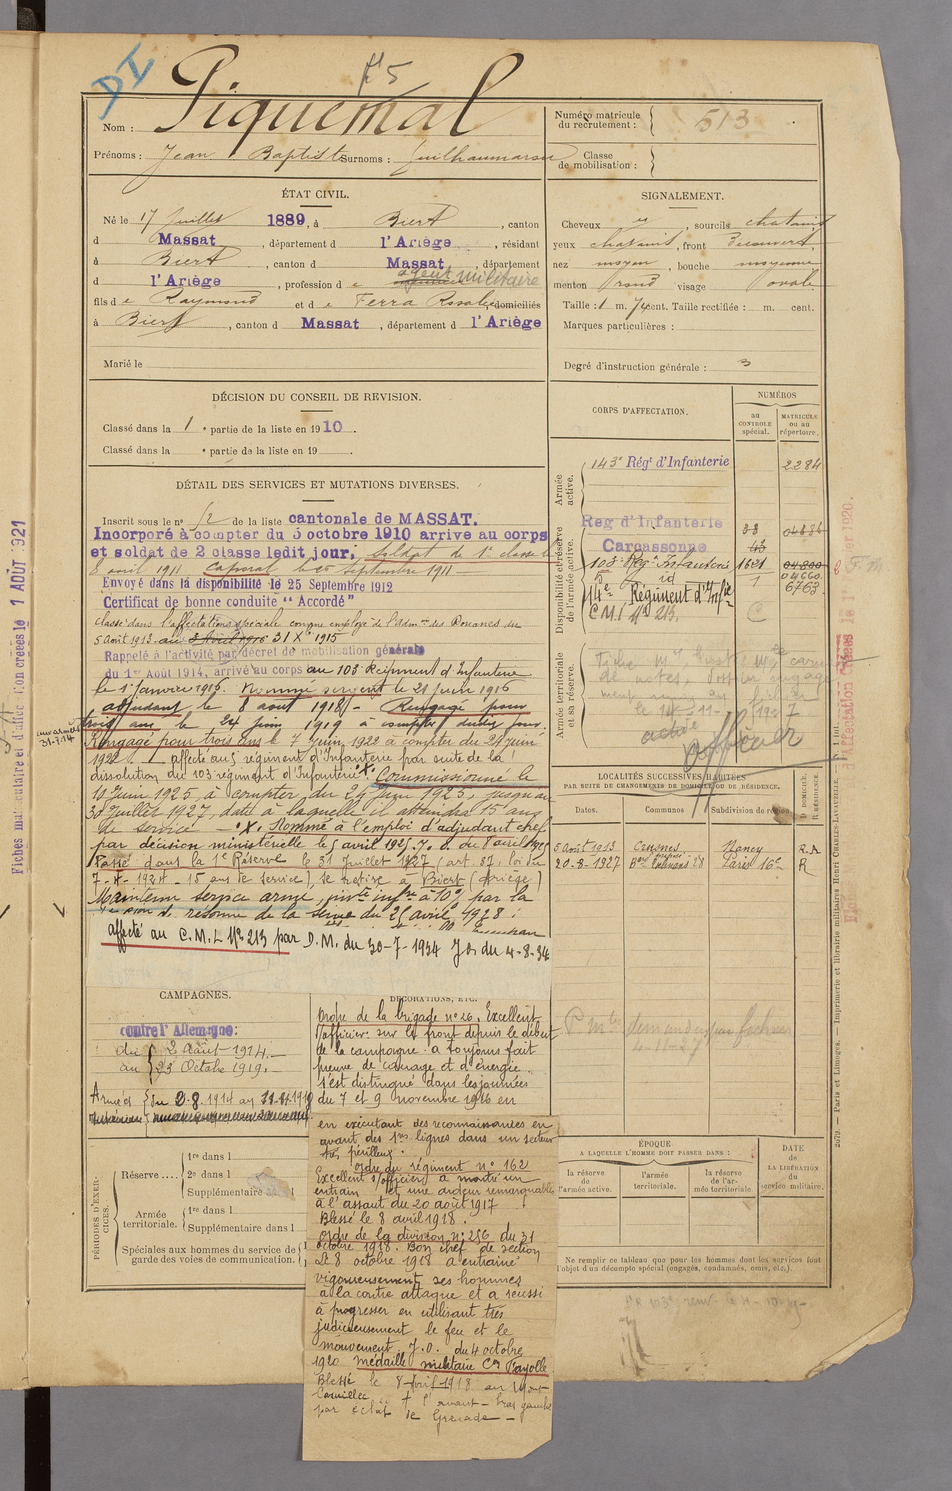 DI
n° 5
Nom : Piquemal
Prénoms : Jean Baptiste Surnoms :
Numéro matricule du recrutement : 513
Classe de mobilisation :
ÉTAT CIVIL.
Né le 17 Juillet 1889, à Biert, canton
d Massat, département d l'Ariège, résidant
à Biert, canton d Massat, département
d l'Ariège, profession d agent militaire
fils de Raymond et de Ferra Rosalie, domiciliés
à Biert, canton d Massat, département d l'Ariège
Marié le
SIGNALEMENT.
Cheveux id, sourcils chatains
yeux chatains, front découvert,
nez moyen, bouche moyenne
menton rond visage ovale
Taille : 1 m. 74 cent. Taille rectifiée : m. cent.
Marques particulières :
Degré d'instruction générale : 3
DÉCISION DU CONSEIL DE REVISION.
Classé dans la 1e partie de la liste en 1910.
Classé dans la e partie de la liste en 19 .
DÉTAIL DES SERVICES ET MUTATIONS DIVERSES.
Inscrit sous le n° 52 de la liste cantonale de MASSAT.
Incorporé à compter du 3 octobre 1910 arrive au corps
et soldat de 2 classe ledit jour; Soldat de 1e classe le
8 avril 1911 Caporal le 25 septembre 1911
Envoyé dans la disponibilité le 25 Septembre 1912
Certificat de bonne conduite "Accordé"
classé dans l'affectation spéciale comme employé de l'Adm on des Douanes du
5 août 1913 au 31 Xbre 1915
Rappelé à l'activité par décret de mobilisation générale
du 1er Août 1914, arrivé au corps au 103 Régiment d'Infanterie
le 1er janvier 1916. Nommé sergent le 21 juin 1916
adjudant le 8 août 1918 - Rengagé pour
trois ans le 24 juin 1919 à compter dudit jour.
Rengagé pour trois ans le 7 juin 1922 à compter du 24 juin
1922. affecté au 5 régiment d'Infanterie par suite de la
dissolution du 103 régiment d'Infanterie. Commissionné le
10 Juin 1925 à compter du 24 Juin 1925, jusqu'au
30 Juillet 1927, date à laquelle il atteindra 15 ans
de service - Nommé à l'emploi d'adjudant chef
par décision ministérielle le 5 avril 1925 J. O. du 8 avril 1925
Passé dans la 1e Réserve le 31 Juillet 1927 (art. 87, loi du
7-4-1924 - 15 ans de service), se retire à Biert (Ariège)
Maintenu service armé, invté infre à 10% par la
Con de réforme de la Seine du 25 avril 1928 :
affecté au C.M.I. N° 213 par D.M. du 30-7-1934 J.O. du 4-8-34
CORPS D'AFFECTATION.
NUMÉROS
au CONTROLE spécial.
MATRICULE ou au répertoire.
Armée active.
143e Régt d'Infanterie 2284
Disponibilité et réserve de l'armée active.
Reg d'Infanterie
Carcassonne 43
103e Rég. Infanterie 1521
5 id 1
14e Régiment d'Inf ie 6763
C.M.I. N° 213. C
Armée territoriale et sa réserve.
active
officier
LOCALITÉS SUCCESSIVES HABITÉES
PAR SUITE DE CHANGEMENTS DE DOMICILE OU DE RÉSIDENCE.
Dates. Communes Subdivision de région
D. DOMICILE. R. RÉSIDENCE.
5 août 1913 Nancy R.A
20-8-1927 Paris 16e R
CAMPAGNES.
contre l'Allemagne:
du 2 Août 1914.
au 23 Octobre 1919.
du 2-8-1914 au
DÉCORATIONS, ETC.
Ordre de la brigade n° 26. Excellent
s/officier sur le front depuis le début
de la campagne a toujours fait
preuve de courage et d'énergie.
s'est distingué dans les journées
du 7 et 9 novembre 1916 en
en exécutant des reconnaissances en
avant des 1res lignes dans un secteur
très périlleux.
ordre du régiment n° 162
Excellent s/officier a montré un
entrain et une ardeur remarquable
à l'assaut du 20 août 1917
Blessé le 8 avril 1918.
ordre de la division n° 256 du 31
octobre 1918. Bon chef de section
Le 8 octobre 1918 a entrainé
vigoureusement ses hommes
à la contre attaque et a réussi
à progresser en utilisant très
judicieusement le feu et le
mouvement J.O. du 4 octobre
1920 Médaille militaire Con Fayolle
Blessé le 8 Avril 1918 au Mont
bras gauche
par éclat de Grenade -
PÉRIODES D'EXERCICES.
Réserve ....
1re dans l
2e dans l
Supplémentaire dans l
Armée territoriale.
1re dans l
Supplémentaire dans l
Spéciales aux hommes du service de garde des voies de communication.
ÉPOQUE
A LAQUELLE L'HOMME DOIT PASSER DANS :
la réserve de l'armée active.
l'armée territoriale.
la réserve de l'armée territoriale.
DATE de LA LIBÉRATION du service militaire.
Ne remplir ce tableau que pour les hommes dont les services font
l'objet d'un décompte spécial (engagés, condamnés, omis, etc.).
2579. — Paris et Limoges. — Imprimerie et librairie militaires Henri CHARLES-LAVAUZELLE.
Fiches matriculaire et d'affectation créées le 1 AOÛT 1921